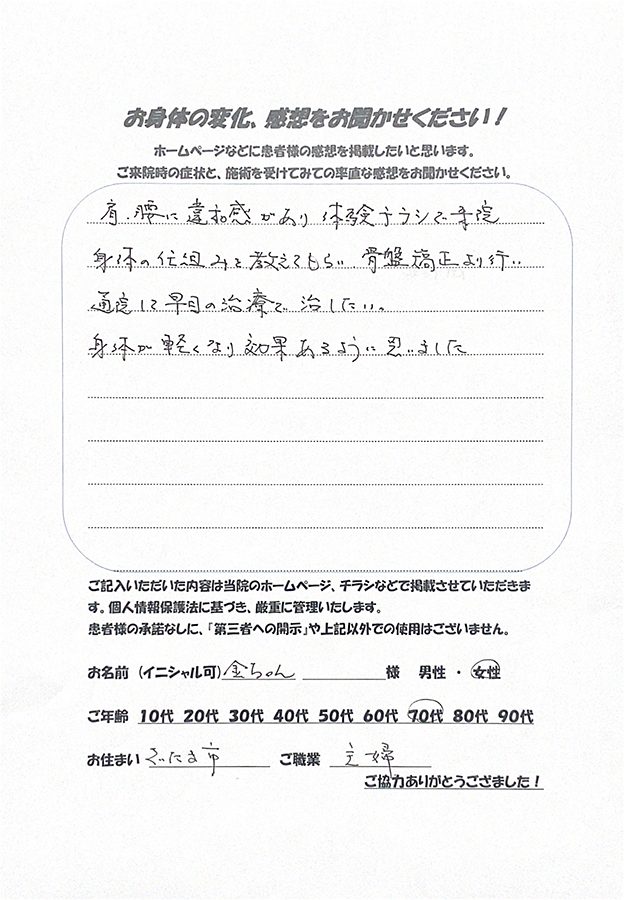 お身体の変化、感想をお聞かせください！
ホームページなどに患者様の感想を掲載したいと思います。
ご来院時の症状と、施術を受けてみての率直な感想をお聞かせください。
肩、腰に違和感があり 体験チラシで来院
身体の仕組みを教えてもらい、骨盤矯正より行い
通院して早目の治療で治したい。
身体が軽くなり効果あるように思いました
ご記入いただいた内容は当院のホームページ、チラシなどで掲載させていただきま
す。個人情報保護法に基づき、厳重に管理いたします。
患者様の承諾なしに、「第三者への開示」や上記以外での使用はございません。
お名前（イニシャル可）金ちゃん 様 男性・女性
ご年齢 10代 20代 30代 40代 50代 60代 70代 80代 90代
お住まい さいたま市 ご職業 主婦
ご協力ありがとうござました！